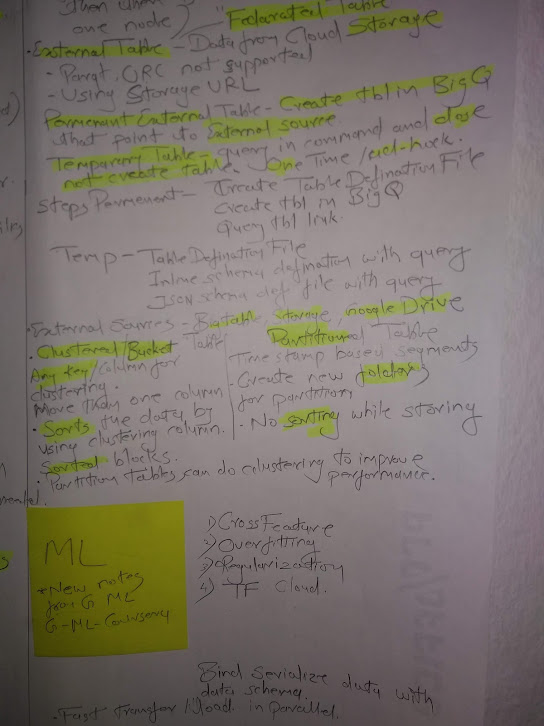 then when
one node)
Fedarated Table
• External Table - Data from Cloud Storage
- Parqt, ORC not supported
- Using Storage URL
Permenant External Table - Create tbl in BigQ
that point to External source.
Temparary Table - query in command and dose
not create table. One Time / ad-hock.
Steps Permenent - Create Table Defination File
Create tbl in BigQ
Query tbl link.
Temp - Table Defination File
Inline schema defination with query
JSON schma def file with query
• External Sources - Bigtable, storage, Google Drive
• Clustered/Bucket Table
Any key/column for
clustering.
More than one column
• Sorts the data by
using clustering column.
Sorted blocks.
Partitioned Table
Time stamp based segments
- Create new folders
for partition
- No sorting while storing
• Partition tables can do clustering to improve
performance.
ML
New notes
from G ML
G-ML-
1) Cross Feature
2) Overfitting
3) Regularization
4) TF Cloud.
Bind serialize data with
data schema.
- Fast transfer / load in parallel.